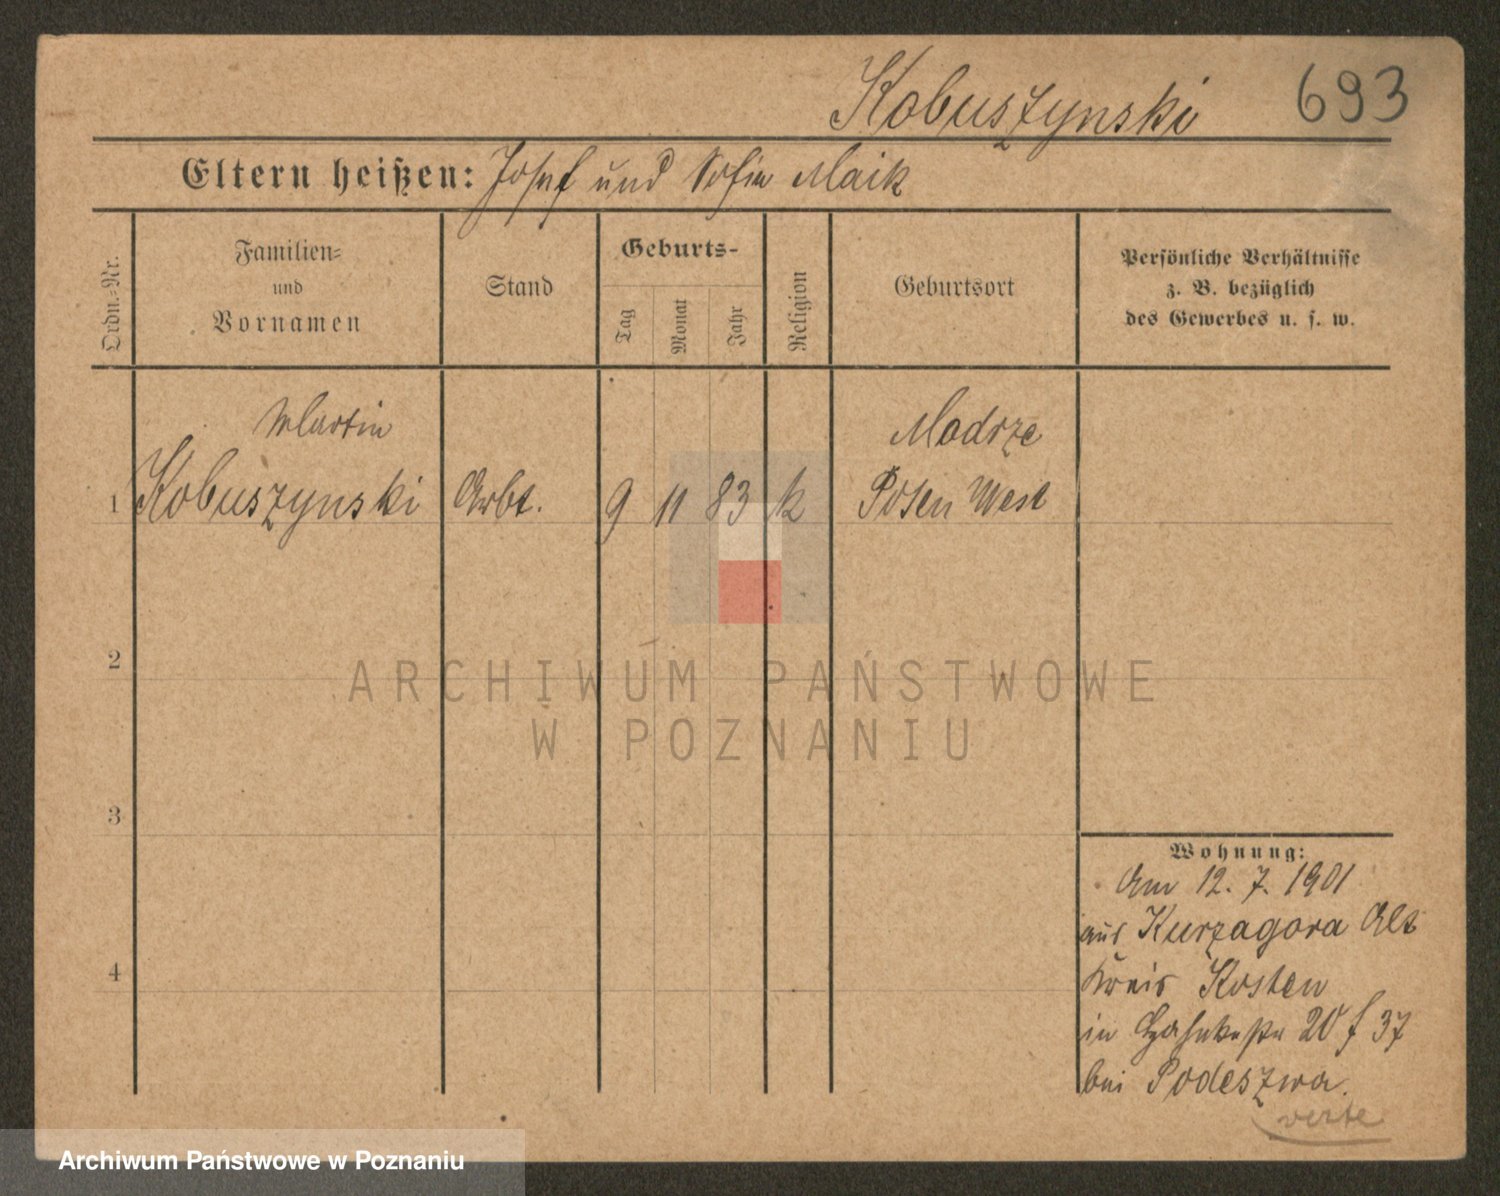 Kobuszynski 693
Eltern heißen: Josef und Sofie Maik
Ordn.-Nr.
Familien-
und
Vornamen
Stand
Geburts-
Tag
Monat
Jahr
Religion
Geburtsort
Persönliche Verhältnisse
z. B. bezüglich
des Gewerbes u. s. w.
Martin
Modrze
1 Kobuszynski Arbt. 9 11 83 k Posen West
2
ARCHIWUM PAŃSTWOWE
W POZNANIU
3
Wohnung:
Am 12. 7. 1901
aus Kurzagora Alt
4
Kreis Kosten
in 20 f 37
bei Podeszwa.
verte
Archiwum Państwowe w Poznaniu